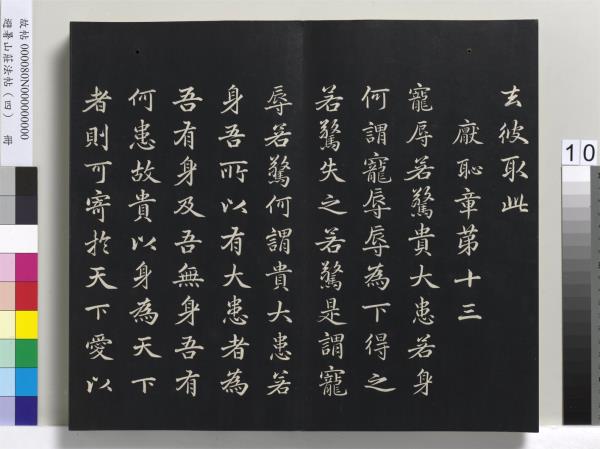 去彼取此
厭恥章第十三
寵辱若驚貴大患若身
何謂寵辱辱為下得之
若驚失之若驚是謂寵
辱若驚何謂貴大患若
身吾所以有大患者為
吾有身及吾無身吾有
何患故貴以身為天下
者則可寄於天下愛以
故帖 000080N000000000
避暑山莊法帖(四) 冊
10